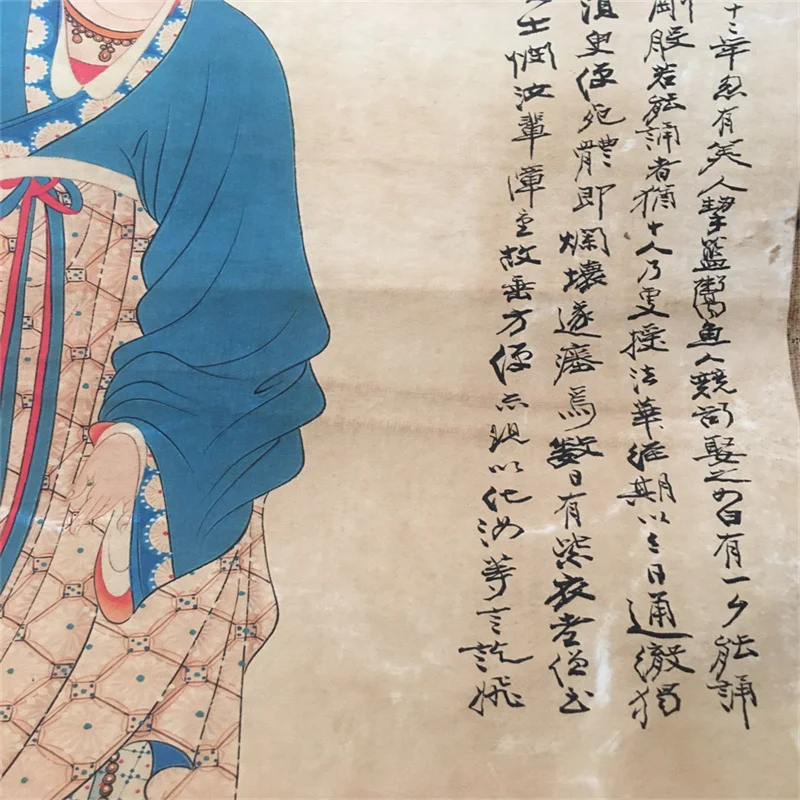 十二年忽有美人挈籃鬻魚人競欲娶之女曰有一夕能誦
剛般若能誦者猶十人乃更授法華經期以三日通徹獨
須臾便死體即爛壞遂瘞焉數日有紫衣老僧至
士憫汝輩障重故垂方便示現以化汝等言訖飛